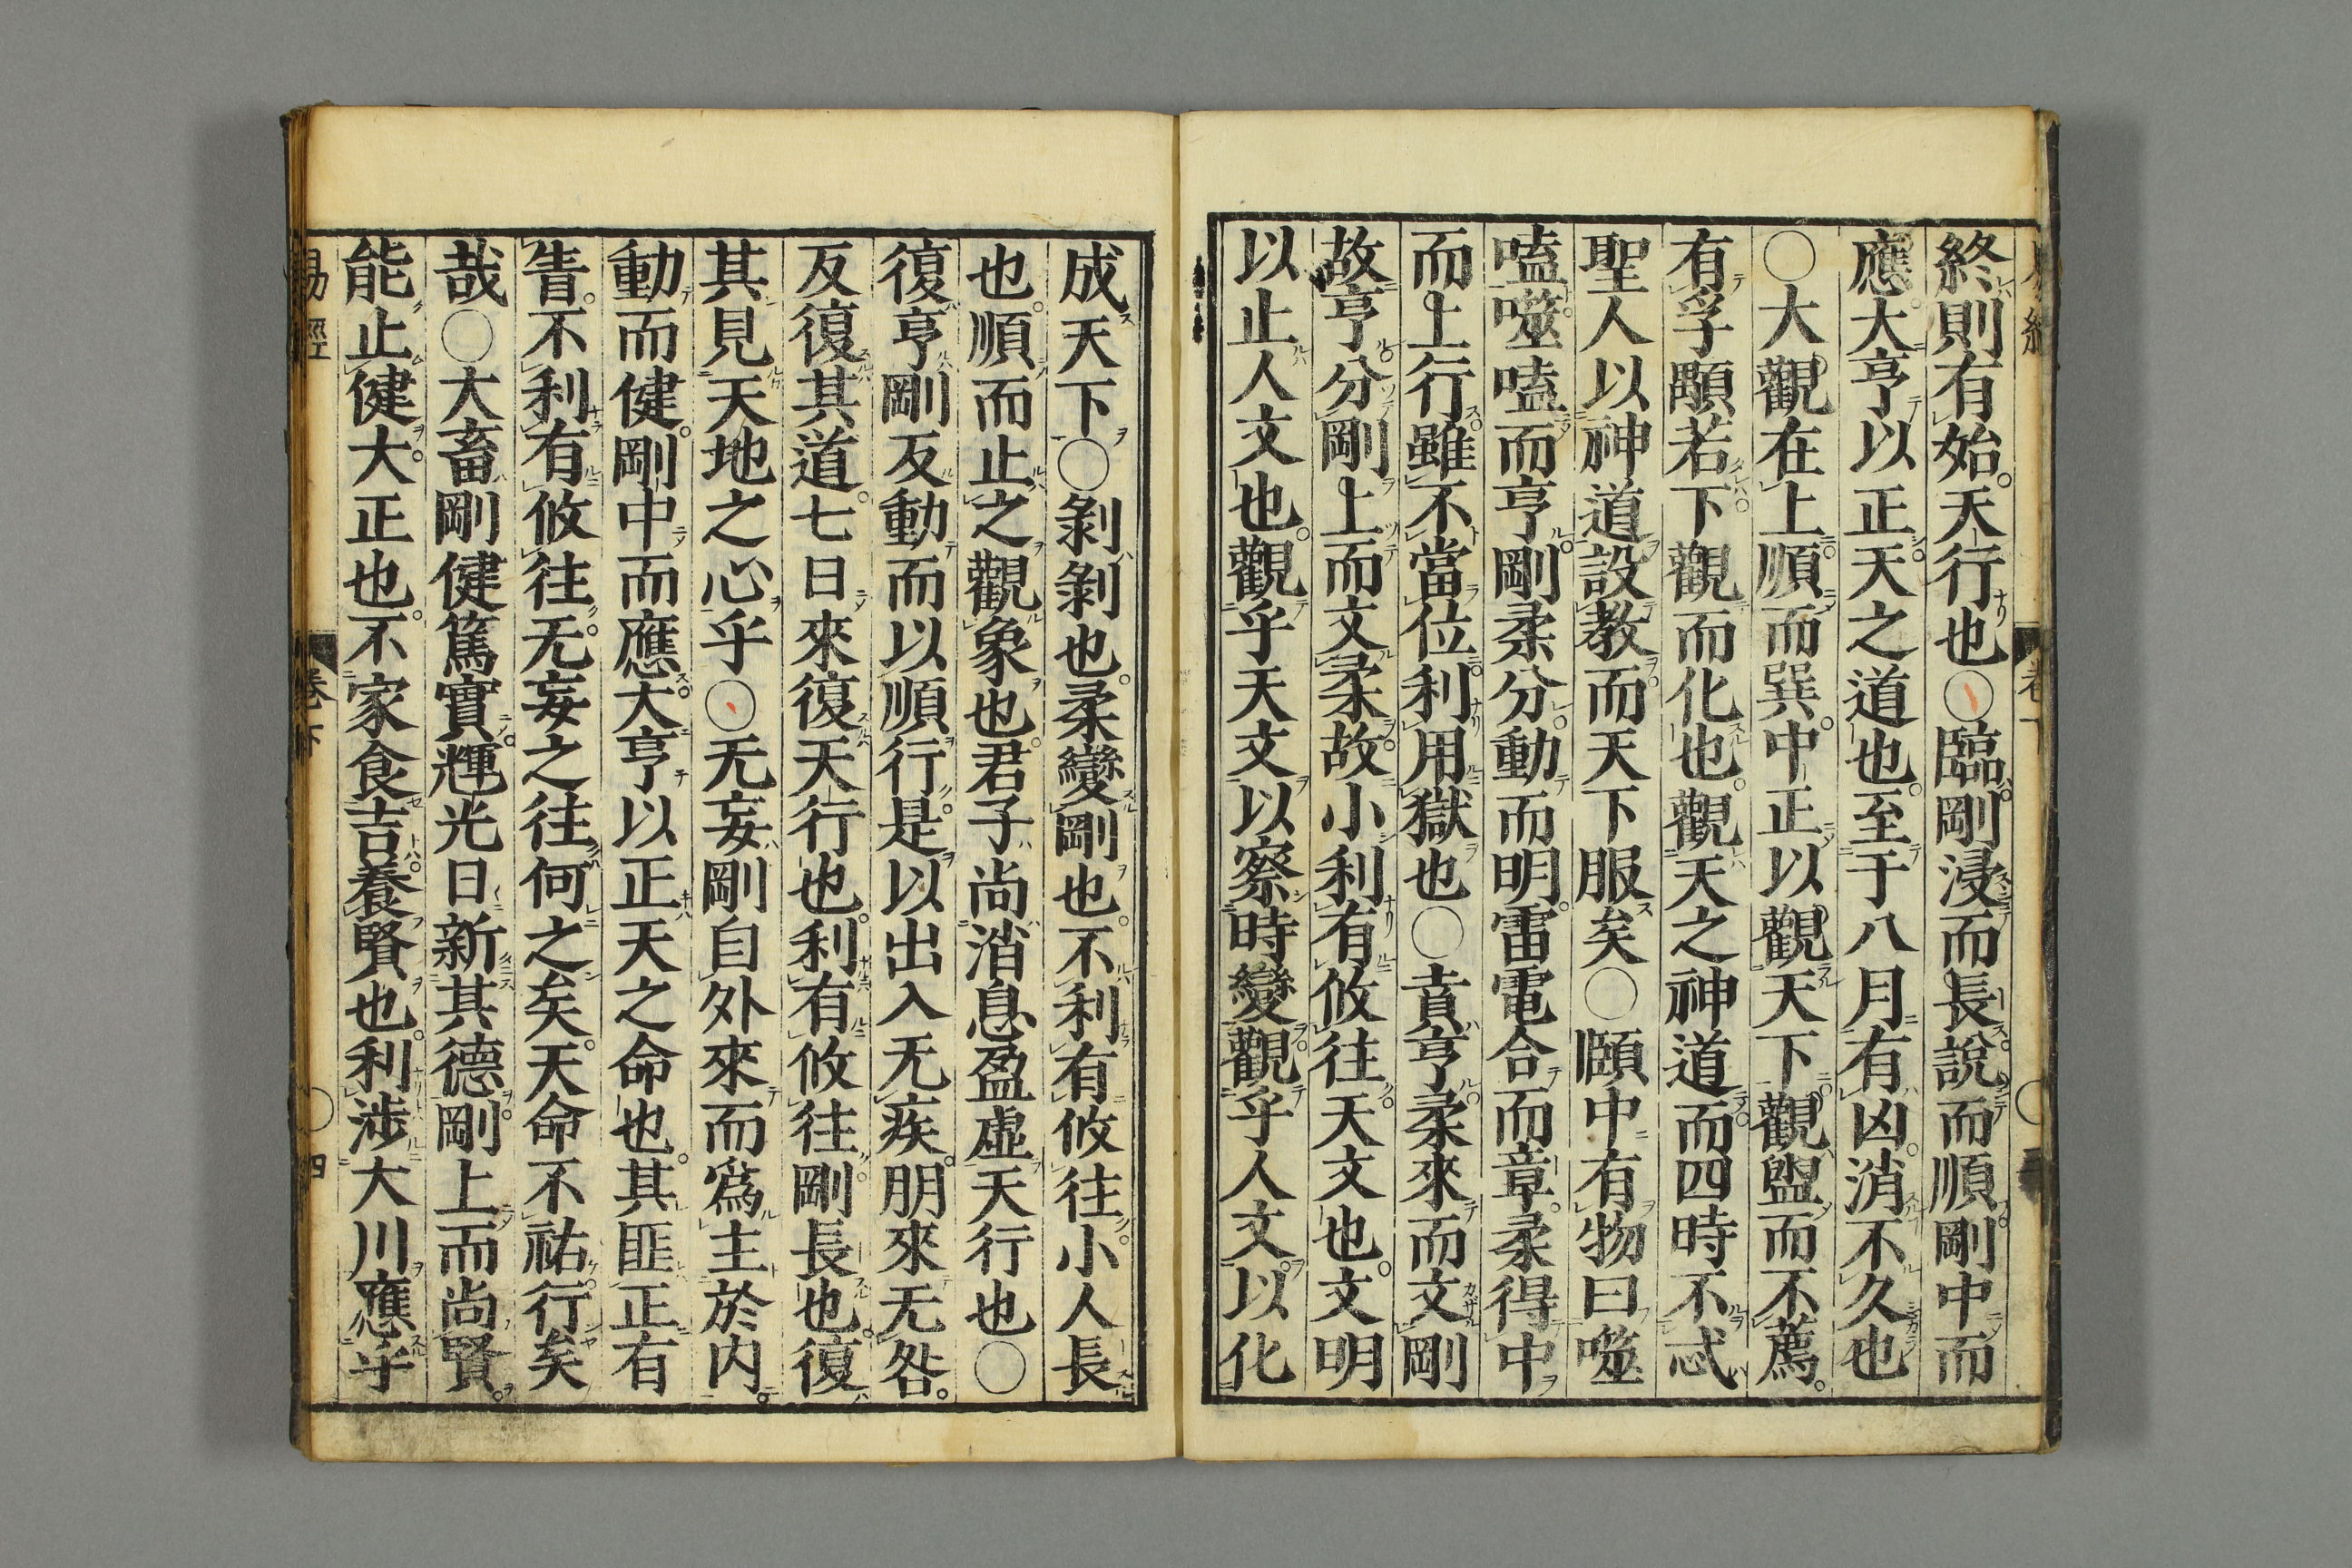 終則有始天行也○臨剛浸而長說而順剛中而
應大亨以正天之道也至于八月有凶消不久也
○大觀在上順而巽中正以觀天下觀盥而不薦
有孚顒若下觀而化也觀天之神道而四時不忒
聖人以神道設教而天下服矣○頤中有物曰噬
嗑噬嗑而亨剛柔分動而明雷電合而章柔得中
而上行雖不當位利用獄也○賁亨柔來而文剛
故亨分剛上而文柔故小利有攸往天文也文明
以止人文也觀乎天文以察時變觀乎人文以化
成天下○剝剝也柔變剛也不利有攸往小人長
也順而止之觀象也君子尚消息盈虛天行也○
復亨剛反動而以順行是以出入无疾朋來无咎
反復其道七日來復天行也利有攸往剛長也復
其見天地之心乎○无妄剛自外來而爲主於内
動而健剛中而應大亨以正天之命也其匪正有
眚不利有攸往无妄之往何之矣天命不祐行矣
哉○大畜剛健篤實輝光日新其德剛上而尚賢
能止健大正也不家食吉養賢也利涉大川應乎
易經 卷下 ○四